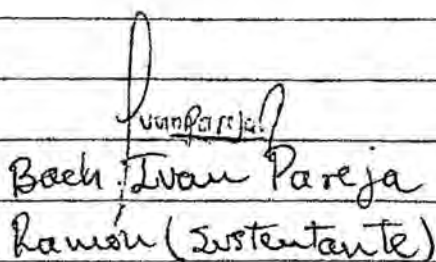 IvanPareja
Bach. Ivan Pareja
Ramón (Sustentante)